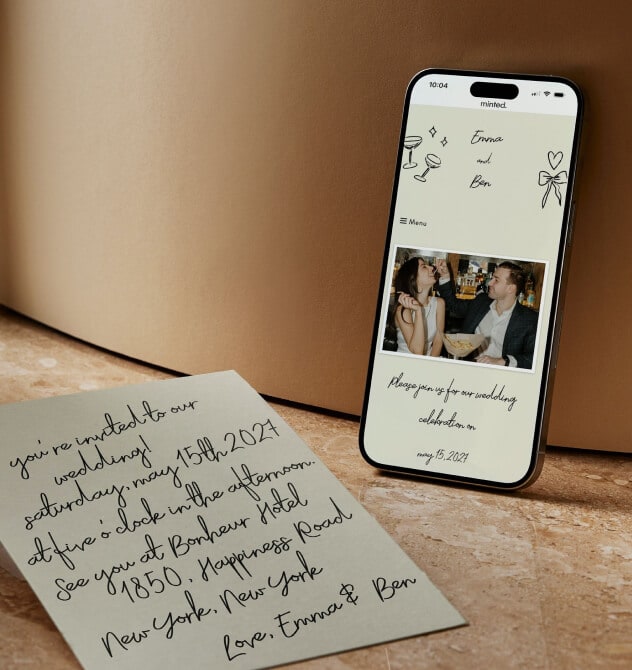 10:04
minted.
Emma
and
Ben
Menu
Please join us for our wedding
celebration on
may 15, 2027
you're invited to our
wedding!
saturday, may 15th 2027
at five o'clock in the afternoon.
See you at Bonheur Hotel
1850, Happiness Road
New York, New York
Love, Emma & Ben